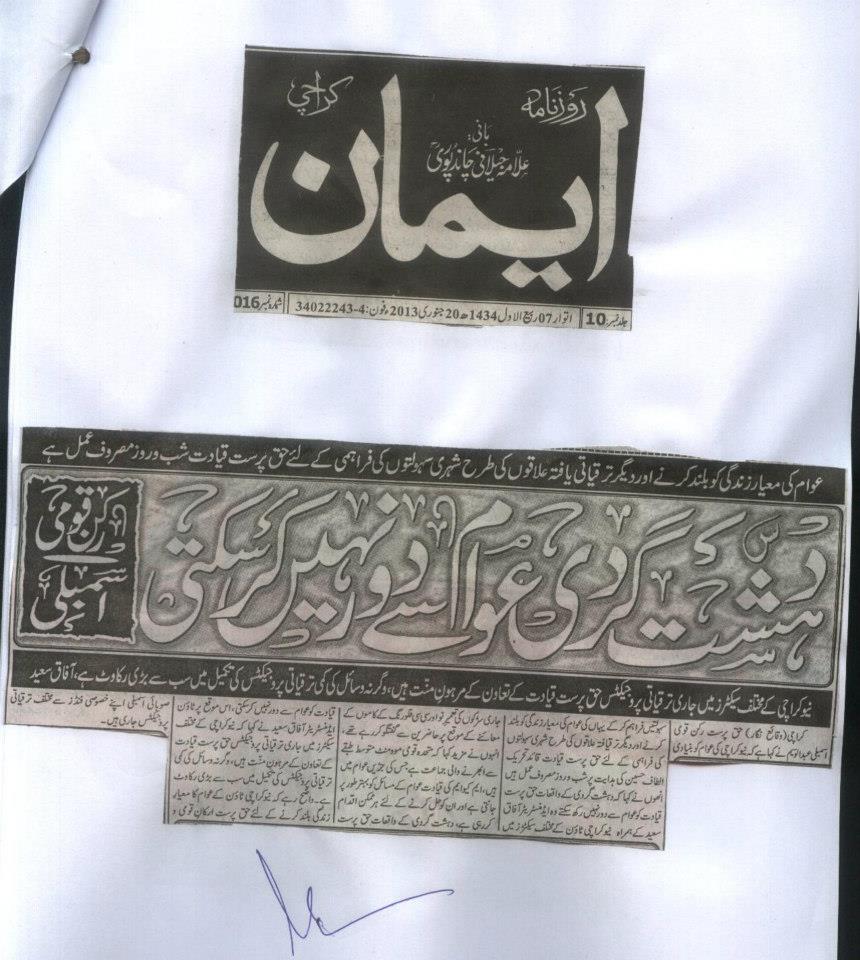 روزنامہ
کراچی
ایمان
بانی:
علامہ جیلانی چاندپوری
جلد نمبر: 10 اتوار 07 ربیع الاول 1434ھ 20 جنوری 2013ء فون: 4-34022243 شمارہ نمبر 016
عوام کی معیار زندگی کو بلند کرنے اور دیگر ترقیاتی یافتہ علاقوں کی طرح شہری سہولتوں کی فراہمی کے لئے حق پرست قیادت شب و روز مصروف عمل ہے
دہشت گردی عوام سے دور نہیں کر سکتی
رکن قومی
اسمبلی
نیو کراچی کے مختلف سیکٹرز میں جاری ترقیاتی پروجیکٹس حق پرست قیادت کے تعاون کے مرہون منت ہیں، وگرنہ وسائل کی کمی ترقیاتی پروجیکٹس کی تکمیل میں سب سے بڑی رکاوٹ ہے، آفاق سعید
کراچی (وقائع نگار) حق پرست رکن قومی
اسمبلی عبدالوسیم نے کہا ہے کہ نیو کراچی کی عوام کو بنیادی
سہولتیں فراہم کرکے یہاں کی عوام کی معیار زندگی کو بلند
کرنے اور دیگر ترقیافتہ علاقوں کی طرح شہری سہولتوں
کی فراہمی کے لئے حق پرست قیادت قائد تحریک
الطاف حسین کی ہدایت پر شب و روز مصروف عمل ہیں
انھوں نے کہا کہ دہشت گردی کے واقعات حق پرست
قیادت کو عوام سے دور نہیں رکھ سکتے وہ ایڈمنسٹریٹر آفاق
سعید کے ہمراہ نیو کراچی ٹاؤن کے مختلف سیکٹرز میں
جاری سڑکوں کی تعمیر نو اور سی سی فلورنگ کے کاموں کے
معائنے کے موقع پر حاضرین سے گفتگو کر رہے تھے،
انہوں نے مزید کہا کہ متحدہ قومی موومنٹ متوسط طبقے
سے ابھرنے والی جماعت ہے جس کی جڑیں عوام میں
ہیں، ایم کیو ایم کی قیادت عوام کے مسائل کو بہتر طور پر
جانتی ہے اور ان کو حل کرنے کے لئے ہر ممکن اقدام
کر رہی ہے، دہشت گردی کے واقعات حق پرست
قیادت کو عوام سے دور نہیں کر سکتی، اس موقع پر ٹاؤن
ایڈمنسٹریٹر آفاق سعید نے کہا کہ نیو کراچی کے مختلف
سیکٹرز میں جاری ترقیاتی پروجیکٹس حق پرست قیادت
کے تعاون کے مرہون منت ہیں، وگرنہ وسائل کی کمی
ترقیاتی پروجیکٹس کی تکمیل میں سب سے بڑی رکاوٹ
ہے۔ واضح رہے کہ نیو کراچی ٹاؤن کے عوام کا معیار
زندگی بلند کرنے کے لئے حق پرست ارکان قومی و
صوبائی اسمبلی اپنے خصوصی فنڈز سے مختلف ترقیاتی
پروجیکٹس جاری ہیں۔